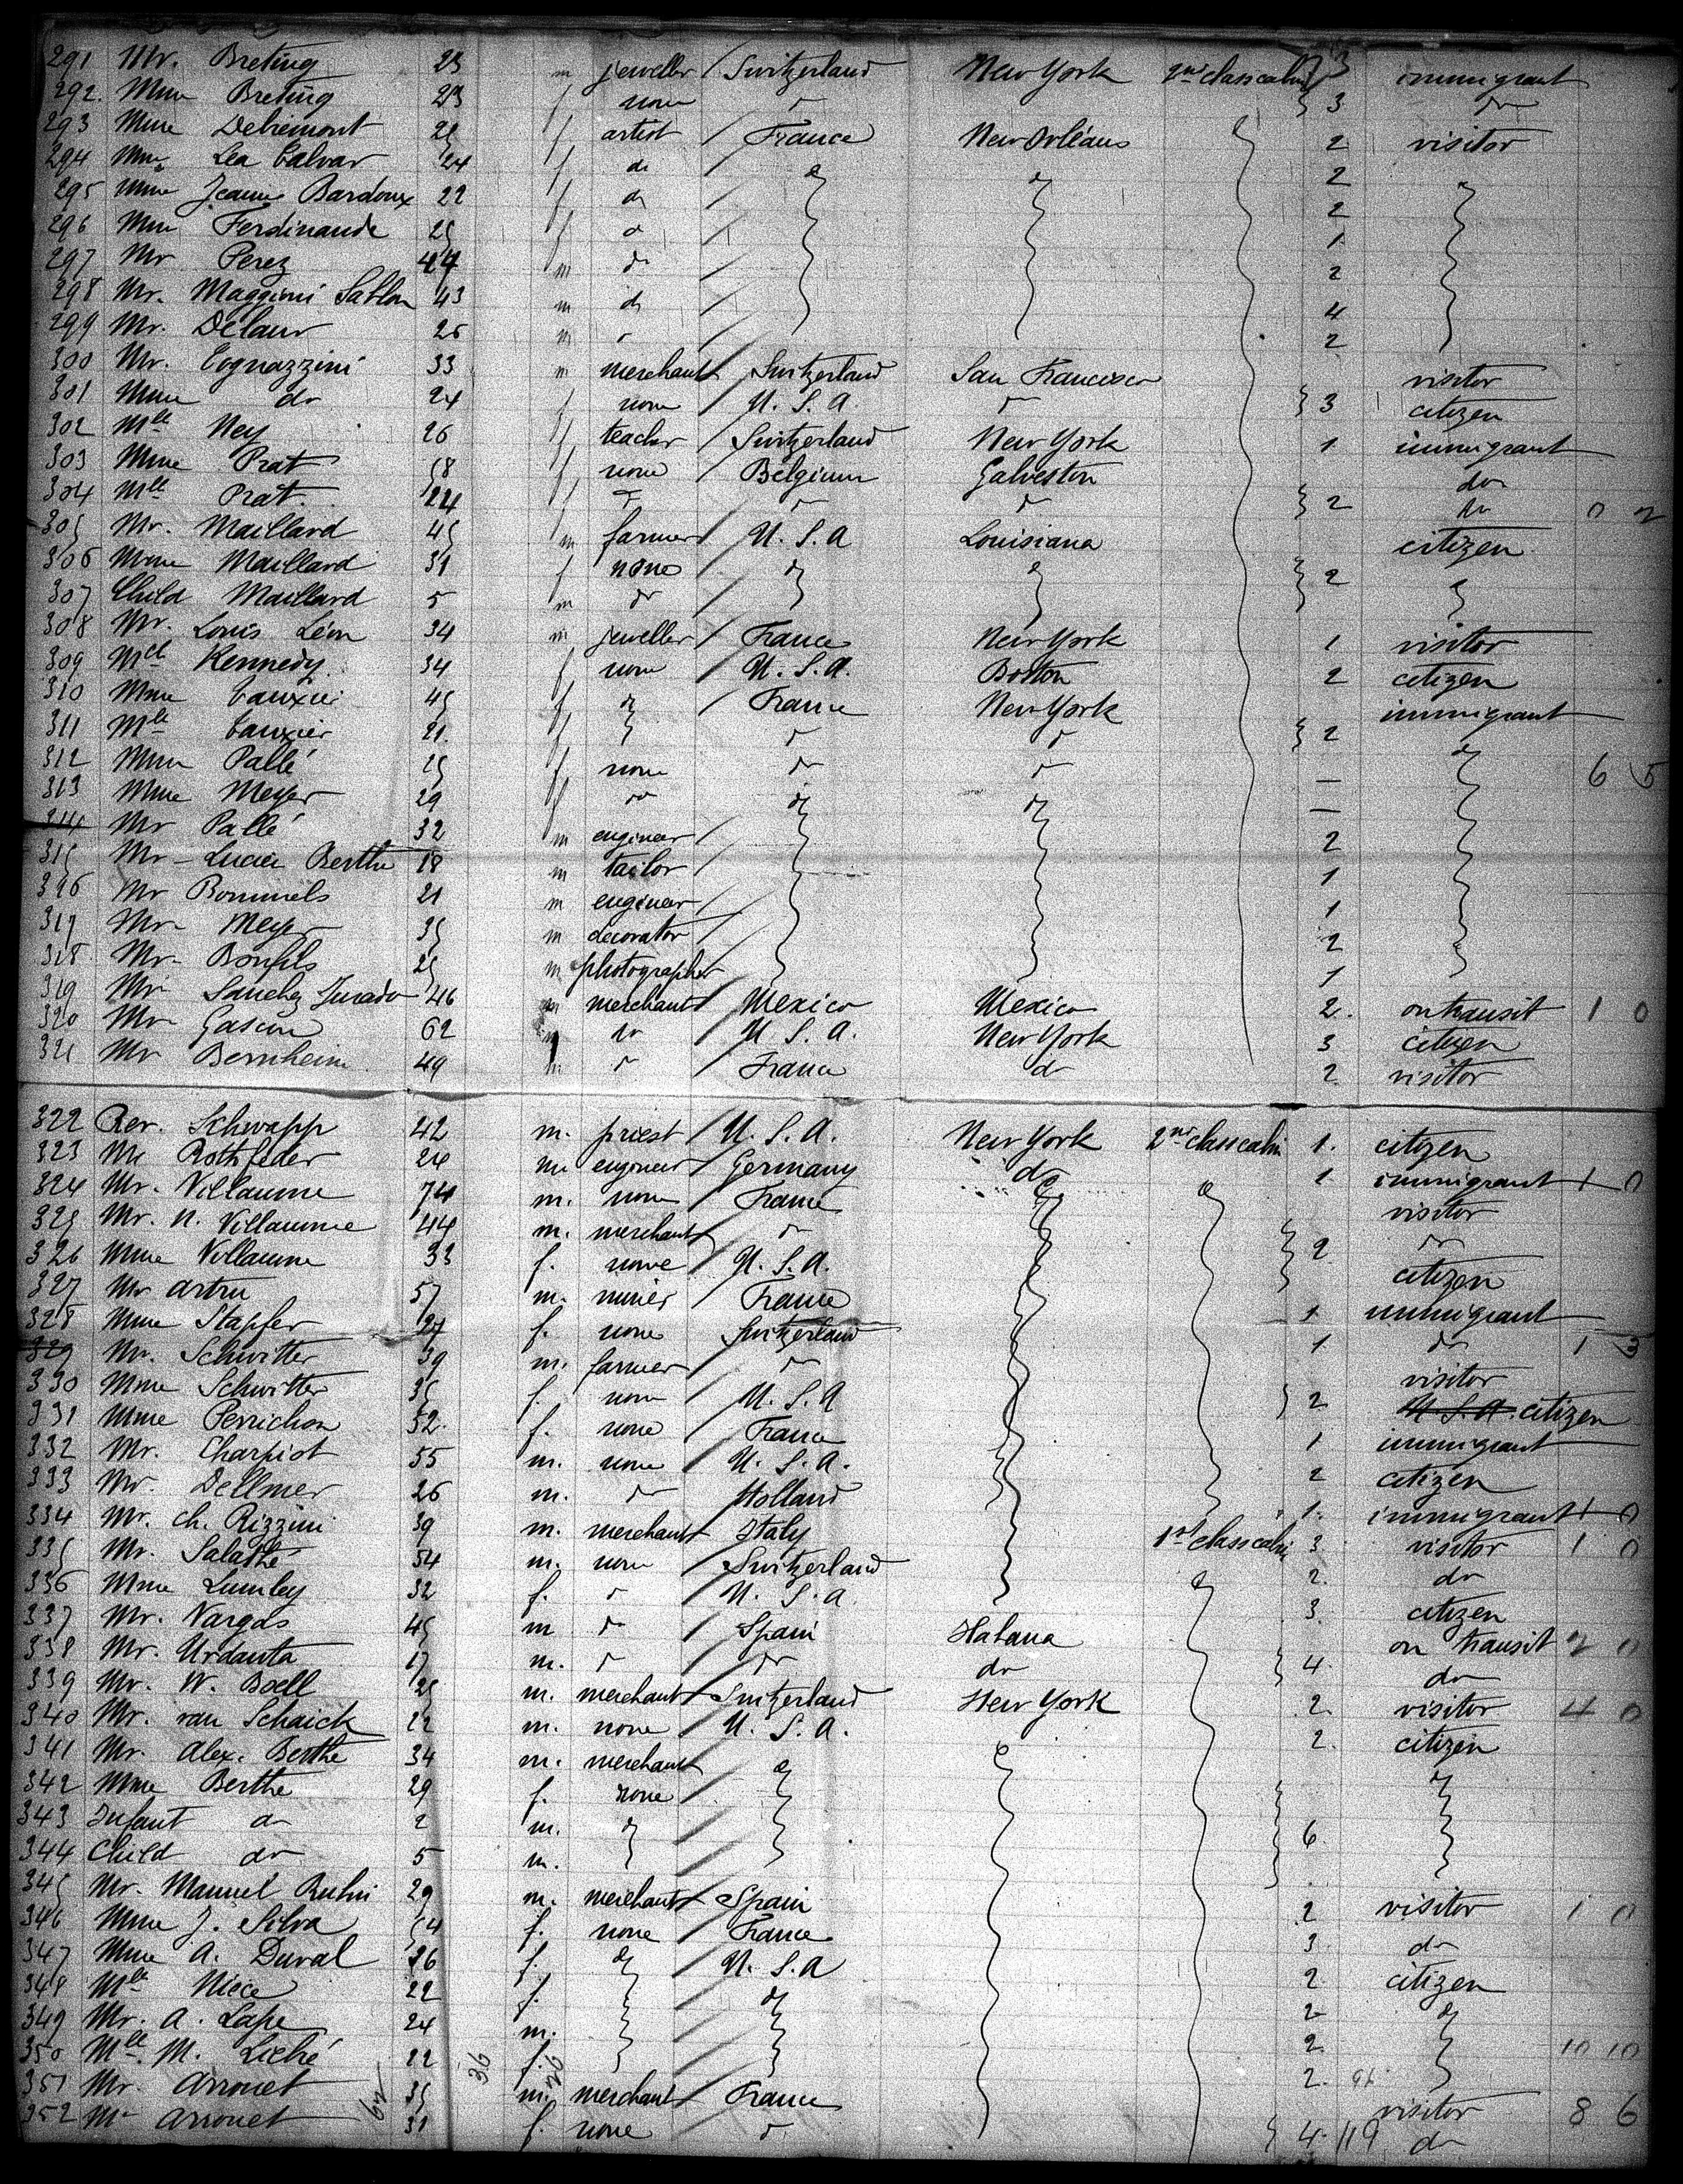 291 Mr. Breting 23 m jeweller / Switzerland New York 2nd class cabin 3 immigrant
292. Mme Breting 23 f none / do } 3 do
293 Mme Debrémont 25 f artist / France New Orléans 2 visitor
294 Mme Lea Calvar 24 f do / 2
295 Mme Jeanne Bardoux 22 f do / 2
296 Mme Ferdinande 25 f do / 1
297 Mr Perez 44 m do / 2
298 Mr. Maggini Sablon 43 m do / 4
299 Mr. Delaur 26 m do / 2
300 Mr. Cognazzini 33 m merchant / Switzerland San Francisco visitor
301 Mme do 24 f none / U. S. A. do } 3 citizen
302 Mlle Ney 26 f teacher / Switzerland New York 1 immigrant
303 Mme Prat 68 f none / Belgium Galveston do
304 Mlle Prat 24 f do / do do } 2 do 0 2
305 Mr. Maillard 45 m farmer / U. S. A Louisiana citizen
306 Mme Maillard 31 f none / } 2
307 Child Maillard 5 m do /
308 Mr. Louis Léon 34 m jeweller / France New York 1 visitor
309 Mlle Kennedy 34 f none / U. S. A. Boston 2 citizen
310 Mme Cauxier 45 f / France New York immigrant
311 Mlle Cauxier 21 f do do } 2
312 Mme Pallé 25 f none / do do 6 5
313 Mme Meyer 29 f do / —
314 Mr Pallé 32 m engineer / 2
315 Mr - Lucien Berthe 18 m tailor / 1
316 Mr Bommels 21 m engineer / 1
317 Mr Meyer 35 m decorator / 2
318 Mr Bonfils 25 m photographer 1
319 Mr Sanchez Jurado 46 m merchant / Mexico Mexico 2. on transit 1 0
320 Mr Gascon 62 m do / U S. A. New York 3 citizen
321 Mr Bernheim 49 m do / France do 2. visitor
322 Rev. Schwapp 42 m. priest / U. S. A. New York 2nd class cabin 1. citizen
323 Mr Rothfeder 24 m engineer / Germany do 1 immigrant 1 0
324 Mr. Villaume 74 m. none / France visitor
325 Mr. N. Villaume 44 m. merchant do 2 do
326 Mme Villaume 33 f. none / U. S. A. citizen
327 Mr Artru 57 m. miner / France 1 immigrant
328 Mme Stapfer 27 f. none / Switzerland 1 do 1 3
329 Mr. Schwitter 39 m. farmer / do visitor
330 Mme Schwitter 35 f. none / U. S. A } 2 U. S. A. citizen
331 Mme Perrichon 52. f. none / France 1 immigrant
332 Mr. Charpiot 55 m. none / U. S. A. 2 citizen
333 Mr. Dellmer 26 m. do / Holland 1. immigrant 1 0
334 Mr. Ch. Rizzini 39 m. merchant / Italy 1st class cabin 3 visitor 1 0
335 Mr. Salathé 54 m. none / Switzerland 2. do
336 Mme Lumley 32 f. do / U. S. A. 3. citizen
337 Mr. Vargas 45 m do / Spain Habana on transit 2 0
338 Mr. Urdanta 17 m. do / do do } 4. do
339 Mr. W. Boell 25 m. merchant / Switzerland New York 2. visitor 4 0
340 Mr. van Schaick 22 m. none / U. S. A. 2. citizen
341 Mr. Alex. Berthe 34 m. merchant /
342 Mme Berthe 29 f. none /
343 Infant do 2 m. / 6.
344 Child do 5 m. /
345 Mr. Manuel Rubin 29 m. merchant / Spain 2 visitor 1 0
346 Mme J. Silva 64 f. none / France 3. do
347 Mme A. Duval 26 f. / U. S. A 2. citizen
348 Mlle Niece 22 f. / 2
349 Mr. A. Lape 24 m. / 2.
350 Mlle M. Liché 22 f. / 2. 10 10
351 Mr. Arrouet 35 m. merchant / France visitor 8 6
352 Mme Arrouet 31 f. none / do } 4. 119 do
62 36